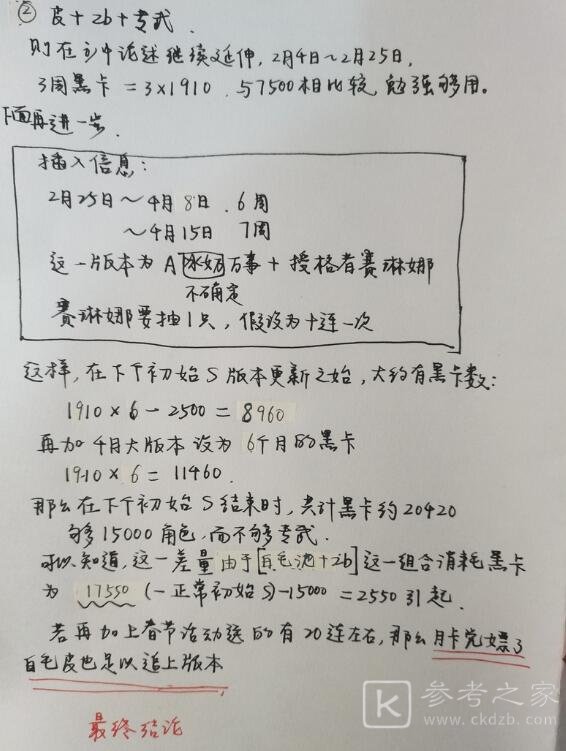 ② 皮+2b+专武.
则在①中论述继续延伸, 2月4日~2月25日,
3周黑卡 = 3×1910 . 与7500相比较, 勉强够用。
下面再进一步.
插入信息:
2月25日~4月8日 . 6周
~4月15日 7周
这一版本为 A 冰奶 万事 + 授格者赛琳娜
不确定
赛琳娜要抽1只, 假设为十连一次
这样, 在下个初始S版本更新之始, 大约有黑卡数:
1910×6-2500=8960
再加4月大版本设为6个月的黑卡
1910×6=11460.
那么在下个初始S结束时, 共计黑卡约20420
够15000角色, 而不够专武.
可以知道, 这一差量由于[白毛池+2b]这一组合消耗黑卡
为 17550 (一正常初始S)-15000 = 2550 引起.
若再加上春节活动送的有20连左右, 那么月卡党嫖了
白毛皮也足以追上版本
最终结论
参考之家
www.ckdzb.com